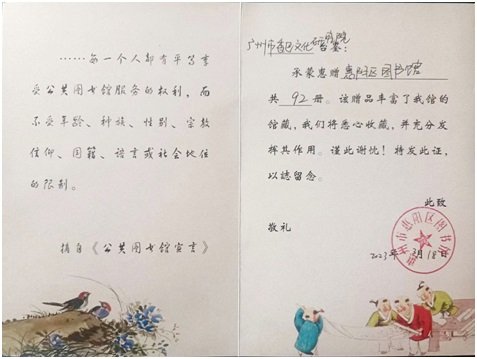 ……每一个人都有平等享
受公共图书馆服务的权利，而
不受年龄、种族、性别、宗教
信仰、国籍、语言或社会地位
的限制。
摘自《公共图书馆宣言》
广州市 文化研究院 台鉴：
承蒙惠赠 惠阳区图书馆
共 92 册。该赠品丰富了我馆的
馆藏，我们将悉心收藏，并充分发
挥其作用。谨此谢忱！特发此证，
以誌留念。
此致
敬礼
惠州市惠阳区图书馆
2023年3月18日